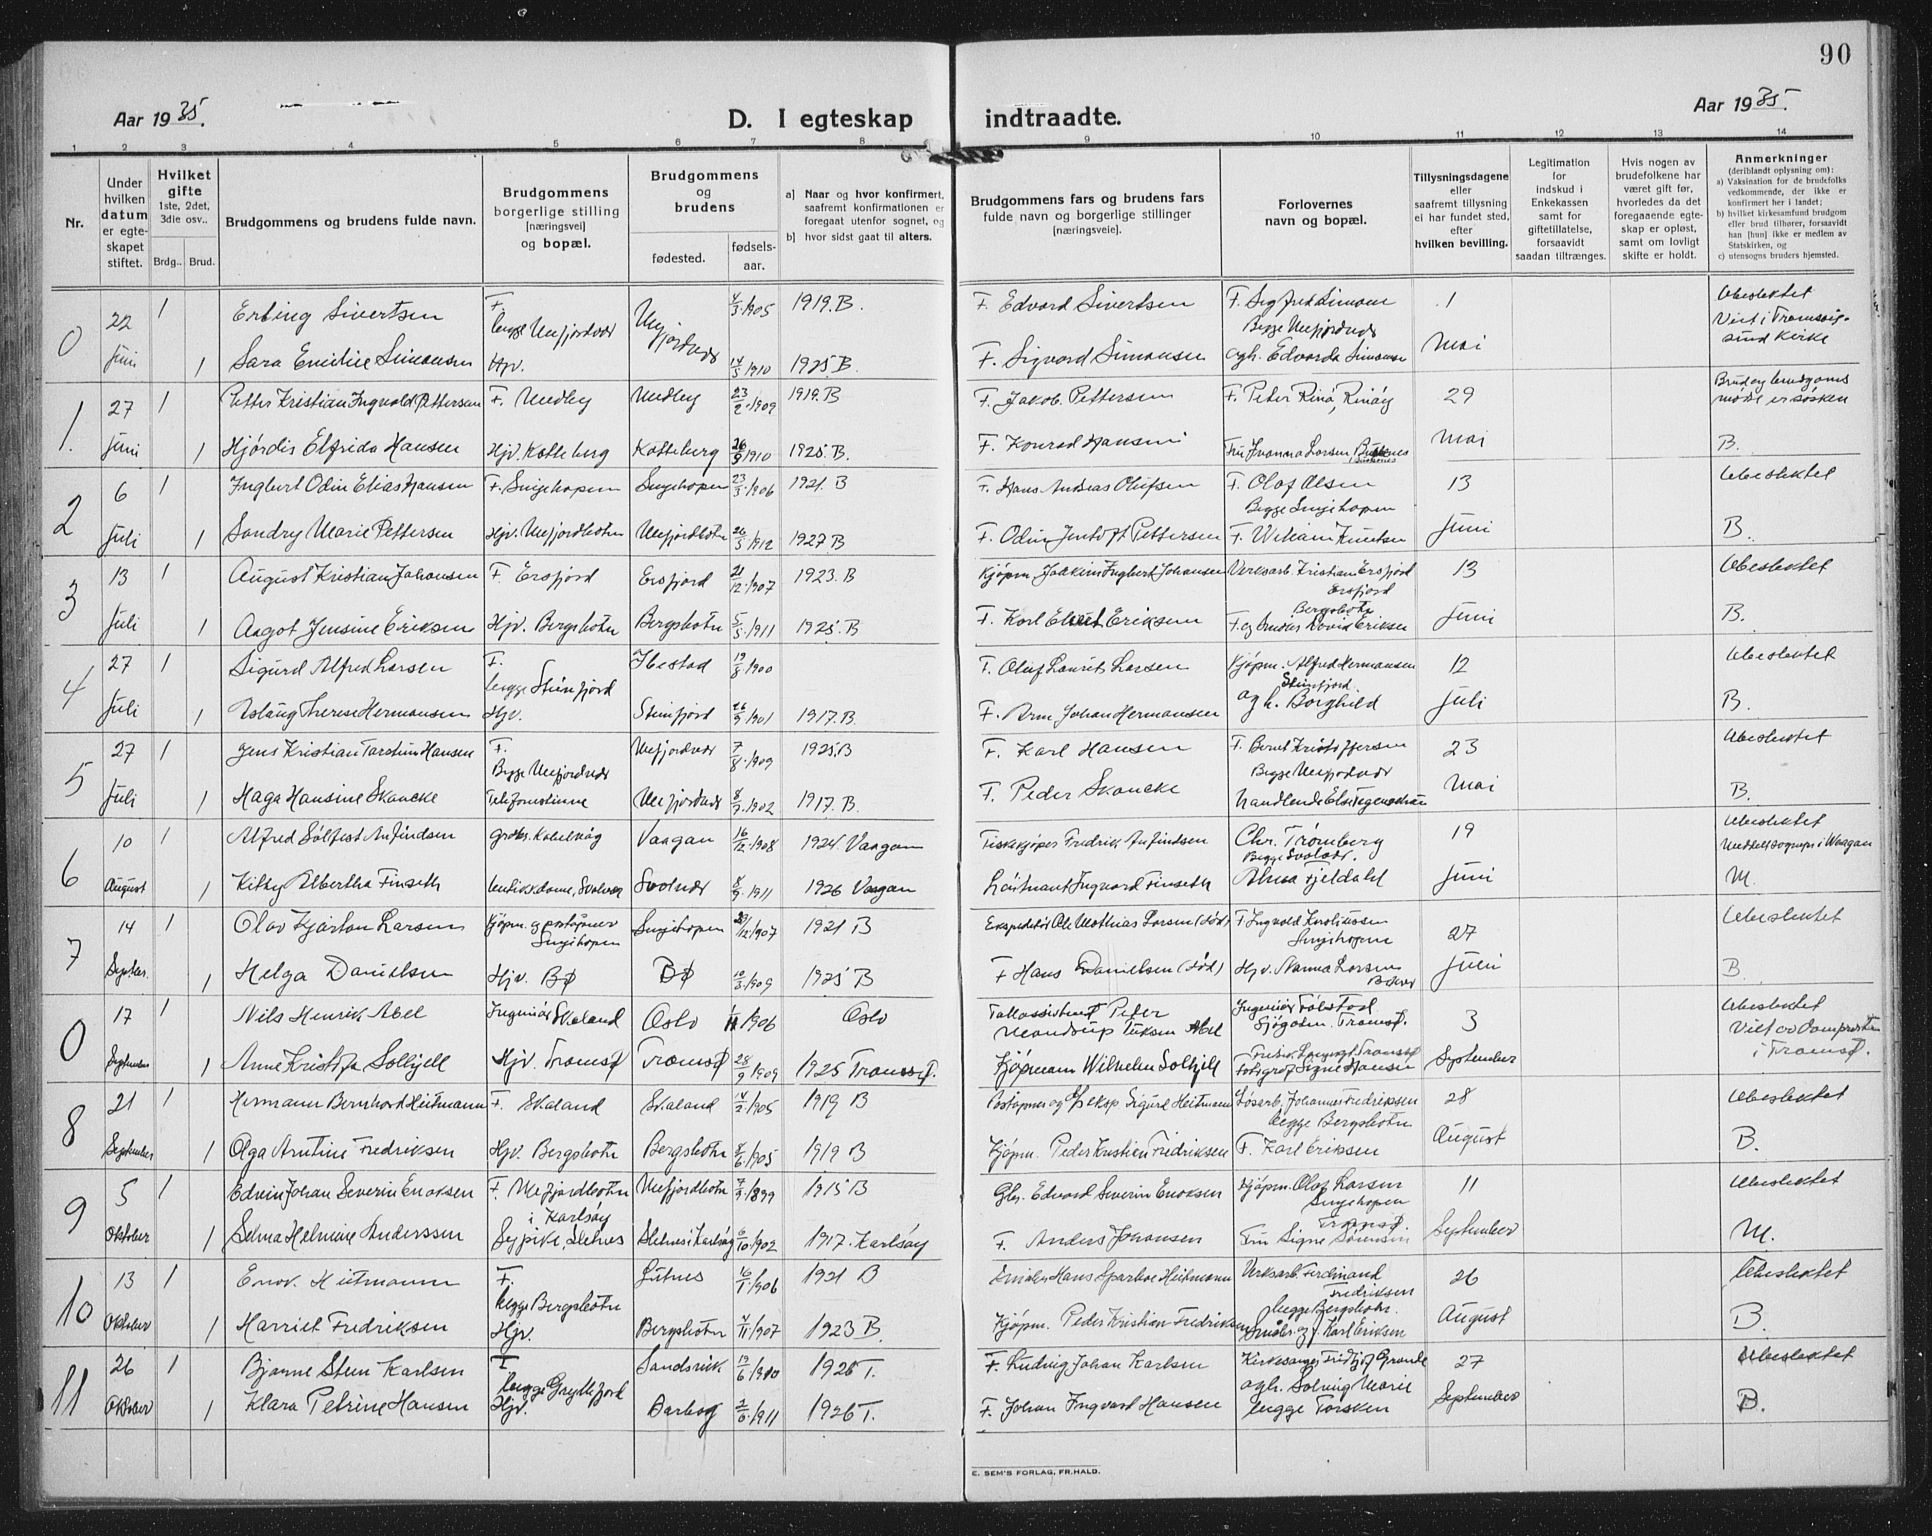 90
Aar 1935.
D. I egteskap indtraadte.
Aar 1935.
1 2 3 4 5 6 7 8 9 10 11 12 13 14
Nr.
Under hvilken datum er egteskapet stiftet.
Hvilket gifte 1ste, 2det, 3die osv..
Brdg.. Brud.
Brudgommens og brudens fulde navn.
Brudgommens borgerlige stilling [næringsvei] og bopæl.
Brudgommens og brudens
fødested.
fødselsaar.
a] Naar og hvor konfirmert, saafremt konfirmationen er foregaat utenfor sognet, og
b] hvor sidst gaat til alters.
Brudgommens fars og brudens fars fulde navn og borgerlige stillinger [næringsveie].
Forlovernes navn og bopæl.
Tillysningsdagene eller saafremt tillysning ei har fundet sted, efter hvilken bevilling.
Legitimation for indskud i Enkekassen samt for giftetillatelse, forsaavidt saadan tiltrænges.
Hvis nogen av brudefolkene har været gift før, hvorledes da det foregaaende egteskap er opløst, samt om lovligt skifte er holdt.
Anmerkninger (deriblandt oplysning om): a) Vaksination for de brudefolks vedkommende, der ikke er konfirmert her i landet; b) hvilket kirkesamfund brudgom eller brud tilhører, forsaavidt han [hun] ikke er medlem av Statskirken, og c) utensogns bruders hjemsted.
0 22 1 Erling Sivertsen F. begge Mefjordvær Mefjordvær 4/3 1905 1919. B. F. Edvard Sivertsen F. Sigfred Simonsen Begge Mefjordvær 1 Ubeslektet Viet i Tromsøysund Kirke
Juni 1 Sara Emilie Simonsen Hjv. 14/5 1910 1925 B. F. Sigvard Simonsen og h. Edvarda Simonsen Mai
1. 27 1 Petter Kristian Ingvald Pettersen F. Medby Medby 23/2 1909 1919. B F. Jakob Pettersen F. Peter Rinø, Rinøy 29 Brud og brudgoms mødre er søsken
Juni 1 Hjørdis Elfrida Hansen Hjv. Kotteberg Kotteberg 26/9 1910 1925. B. F. Konrad Hansen Fru Ivanna Larsen Mai B.
2 6 1 Ingbert Odin Elias Hansen F. Senjehopen Senjehopen 23/3 1906 1921. B F. Hans Andreas Olufsen F. Olaf Olsen Begge Senjehopen 13 Ubeslektet
Juli 1 Sandry Marie Pettersen Hjv. Mefjordbotn Mefjordbotn 26/3 1912 1927 B F. Odin Jentoft Pettersen F. William Knutsen Juni B.
3 13 1 August Kristian Johansen F. Ersfjord Ersfjord 21/12 1907 1923. B Kjøpm. Joakim Ingbert Johansen Verksarb. Kristian Ersfjord Ersfjord 13 Ubeslektet
Juli 1 Aagot Jensine Eriksen Hjv. Bergsbotn Bergsbotn 5/5 1911 1925. B F. Karl Eriksen Bergsbotn F. og David Eriksen Juni B.
4 27 1 Sigurd Alfred Larsen F. begge Steinfjord Ibestad 19/8 1900 F. Oluf Laurits Larsen Kjøpm. Alfred Hermansen Steinfjord. 12 Ubeslektet
Juli 1 Aslaug Therese Hermansen Hjv. Steinfjord 26/9 1901 1917. B. F. Arn Johan Hermansen og h. Borghild Juli B.
5 27 1 Jens Kristian Torstein Hansen F. Begge Mefjordvær Mefjordvær 7/8 1909 1925. B F. Karl Hansen F. Bernt Kristoffersen Begge Mefjordvær 23 Ubeslektet
Juli 1 Haga Hansine Skancke Telefonistinne Mefjordvær 8/7 1902 1917. B. F. Peder Skancke Handlende Mai B.
6 10 1 Alfred Sølfest Anfindsen Kabelvåg Vaagan 16/12 1908 1924 Vaagan Fiskekjøper Fredrik Anfindsen Chr. Trømberg Begge Svolvær. 19 Ubeslektet i Vaagan
August 1 Kitty Albertha Finseth butikkdame, Svolvær Svolvær 4/9 1911 1926 Vaagan Løitnant Ingvard Finseth Alma Fjeldahl Juni M.
7 14 1 Olav Kjartan Larsen Kjøpm. og postaapner Senjehopen Senjehopen 23/12 1907 1921 B Ekspeditør Ole Mathias Larsen (død) F. Ingvald Karoliussen Senjehopen 27 Ubeslektet
Septbr. 1 Helga Danielsen Hjv. Bø Bø 10/3 1909 1925 B F Hans Danielsen (død) Hjv. Nanna Larsen Juli B.
0 17 1 Nils Henrik Abel Ingeniør Skaland Oslo 1/11 1906 Oslo Peter Mandrup Tuxen Abel Ingeniør Tromsø. 3 Ubeslektet Viet av Domprosten i Tromsø.
September 1 Anne Kristofa Solhjell Hjv. Tromsø Tromsø 28/9 1909 1925 Tromsø. Kjøpmann Wilhelm Solhjell Tromsø Fotograf Signe Hansen September
8 21 1 Hermann Bernhard Heitmann F. Skaland Skaland 14/2 1905 1919 B Postapner og Eksp. Sigurd Heitmann Løsarb. Johannes Fredriksen begge Bergsbotn 28 Ubeslektet
September 1 Olga Arntine Fredriksen Hjv. Bergsbotn Bergsbotn 4/6 1905 1919 B Kjøpm. Peder Kristian Fredriksen F. Karl Eriksen August B.
9 5 1 Edvin Johan Severin Enoksen F. Mefjordbotn Mefjordbotn 7/9 1899 1915 B Gbr. Edvard Severin Enoksen Kjøpm. Olaf Larsen Senjehopen 11 Ubeslektet
Oktober 1 Selma Helmine Anderssen i Karlsøy Sypike, Sletnes Sletnes i Karlsøy 6/10 1902 1917. Karlsøy F. Anders Johansen Tromsø. Fru Signe Sørensen September M.
10 13 1 Enov. Heitmann F. begge Bergsbotn Lutnes 16/1 1906 1921 B Hans Sparboe Heitmann Verksarb. Ferdinand Fredriksen begge Bergsbotn. 26 Ubeslektet
Oktober 1 Harriet Fredriksen Hjv. Bergsbotn 4/11 1907 1923 B. Kjøpm. Peder Kristian Fredriksen og f. Karl Eriksen August B.
11 26 1 Bjarne Stein Karlsen F. begge Gryllefjord Sandsvik 19/6 1910 1926 T. F. Ludvig Johan Karlsen Kirkesanger Fridtjof Grande 27 Ubeslektet
Oktober 1 Klara Petrine Hansen Hjv. Barbog 2/6 1911 1926 T. F. Johan Ingvard Hansen og h. Solveig Marie begge Torsken September B.
E. SEM'S FORLAG, FR.HALD.